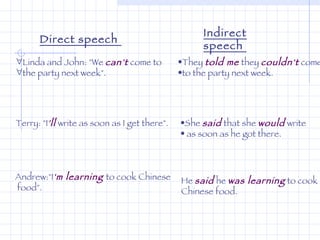 Direct speech
Indirect
speech
∀Linda and John: "We can't come to
∀the party next week".
•They told me they couldn't come
•to the party next week.
Terry: "I'll write as soon as I get there".
•She said that she would write
• as soon as he got there.
Andrew:"I'm learning to cook Chinese
food".
He said he was learning to cook
Chinese food.